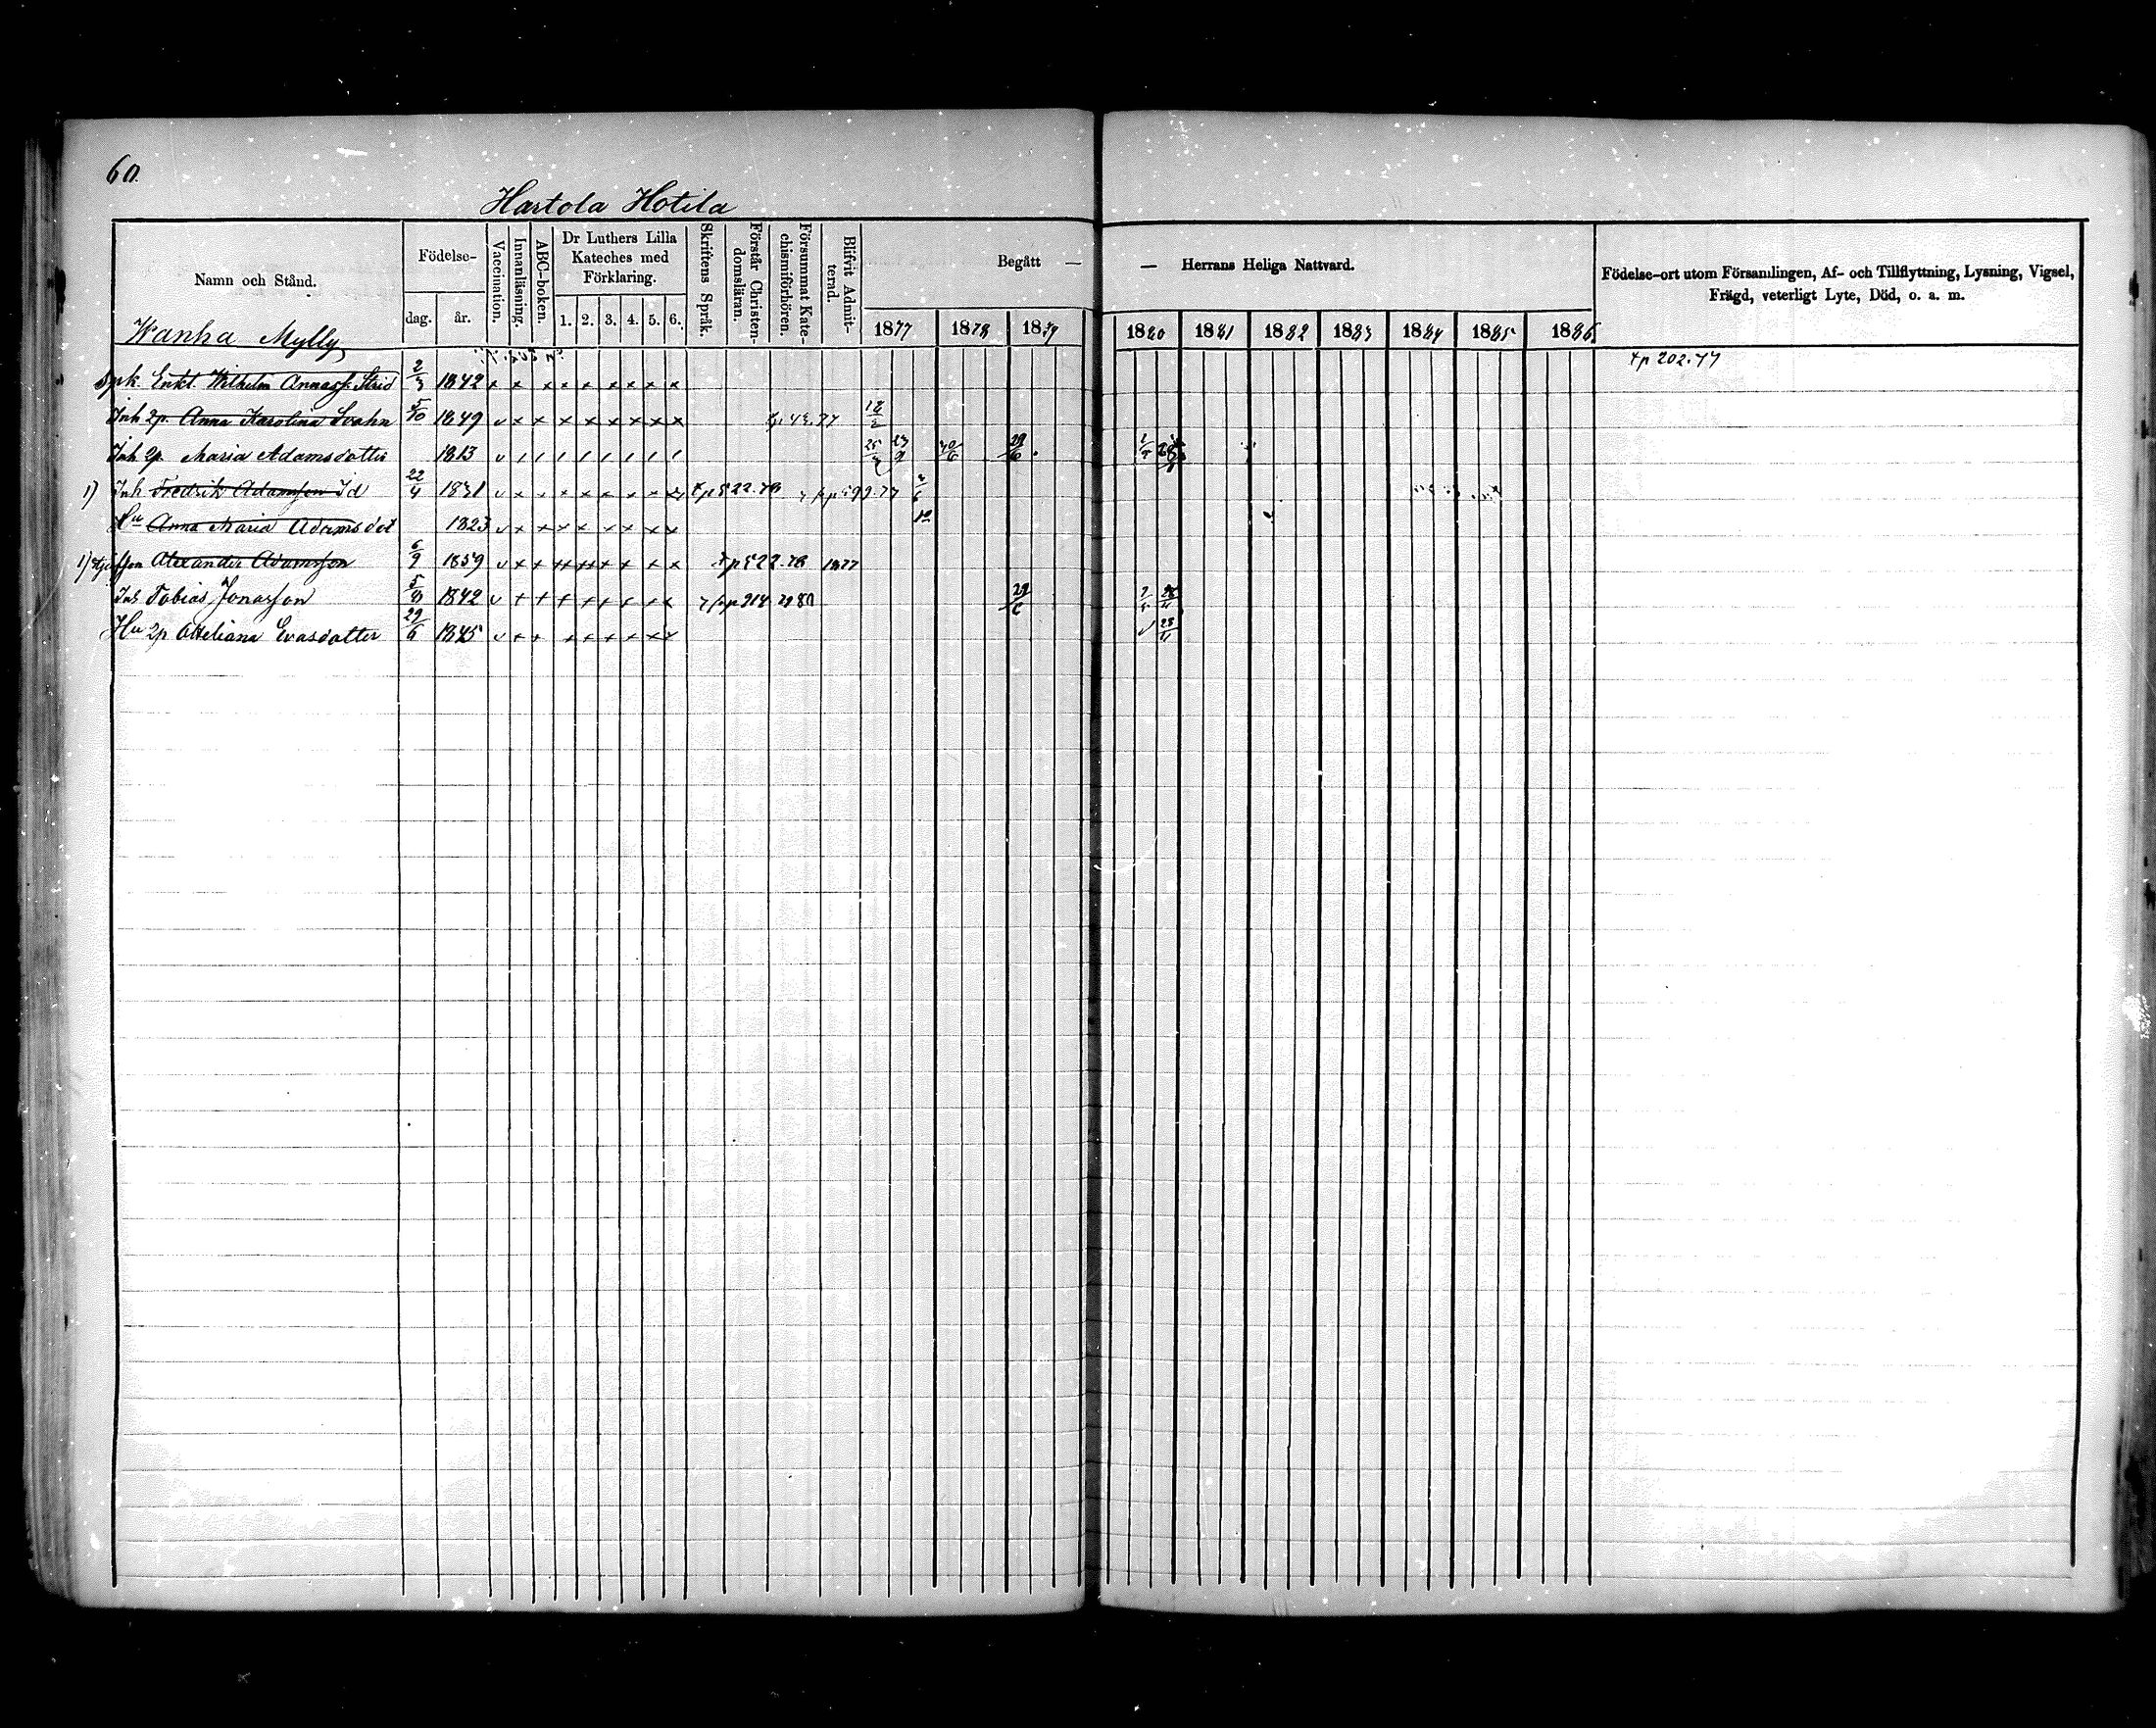 60.
Hartola Hotila
Namn och Stånd.
Födelse-
dag. år.
Vaccination.
Innanläsning.
ABC-boken.
Dr Luthers Lilla
Kateches med
Förklaring.
1. 2. 3. 4. 5. 6.
Skriftens Språk.
Förstår Christen-
domsläran.
Försummat Kate-
chismiförhören.
Blifvit Admit-
terad.
Begått —
1877 1878 1879
— Herrans Heliga Nattvard.
1880 1881 1882 1883 1884 1885 1886
Födelse-ort utom Församlingen, Af- och Tillflyttning, Lysning, Vigsel,
Frägd, veterligt Lyte, Död, o. a. m.
Wanha Mylly
Enkl. Wilhelm Annass. Strid 2/3 1842 x x x x x x x x x fp 202.77
Inh 2p. Anna Karolina Svahn 5/10 1849 v x x x x x x x x 43.77
Inh 2p. Maria Adamsdotter 1813 v 29/6
1) Inh Fredrik Adamsson Id 22/4 1831 v x x x x x x x x fp 522.78
Hu Anna Maria Adamsdot 1823 v x x x x x x x x
1) Alexander Adamsson 6/9 1859 v x x x x x x x x fp 522.78 1877
Inh Tobias Jonasson 1842 v x x x x x x x x 29/6
Hu 2p Evasdotter 29/6 1845 v x x x x x x x x